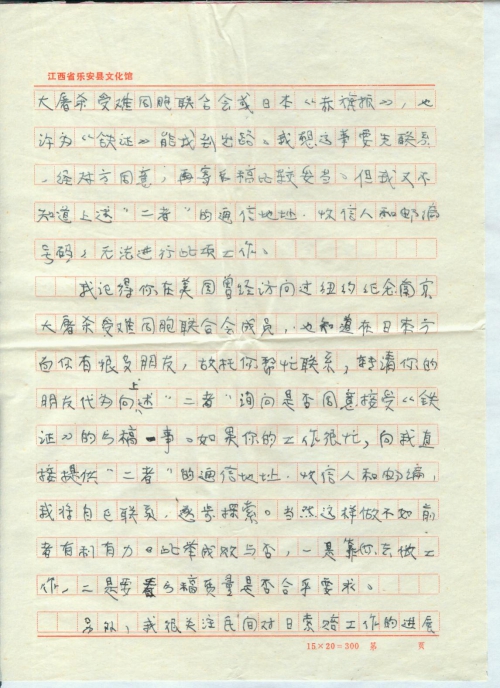 江西省乐安县文化馆
大屠杀受难同胞联合会或日本《赤旗报》，也
许为《铁证》能找到出路。我想这事要先联系
，经对方同意，再寄后稿比较妥当。但我又不
知道上述“二者”的通信地址、收信人和邮编
号码，无法进行此项工作。
我记得你在美国曾经访问过纽约纪念南京
大屠杀受难同胞联合会成员，也知道在日本方
面你有很多朋友，故托你帮忙联系，转请你的
朋友代为向上述“二者”询问是否同意接受《铁
证》的书稿一事。如果你的工作很忙，向我直
接提供“二者”的通信地址、收信人和邮编，
我将自己联系，逐步探索。当然这样做不如前
者有利有力。此举成败与否，一是靠你去做工
作，二是书稿质量是否合乎要求。
另外，我很关注民间对日索赔工作的进展
15×20=300 第 页